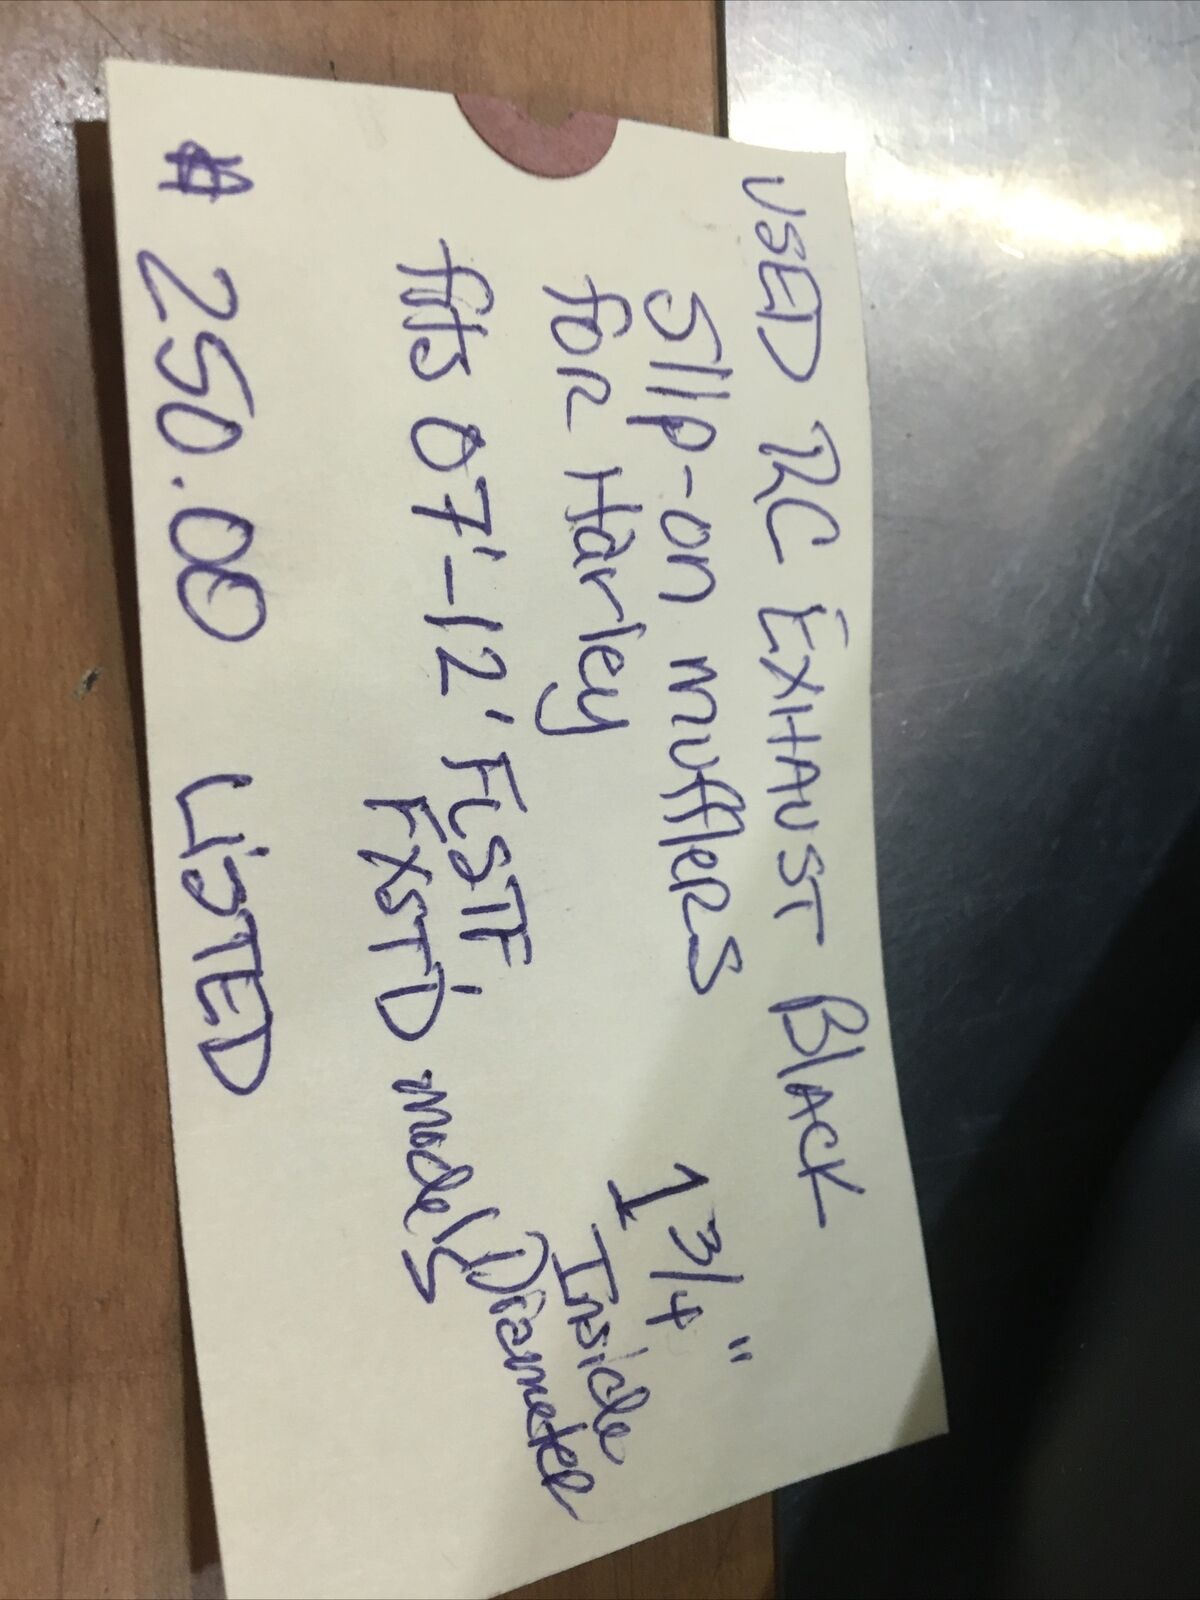 USED RC EXHAUST BLACK
Slip-on mufflers
for Harley
1 3/4"
Inside
Diameter
fits 07'-12' FLSTF
FXSTD models
# 250.00 LISTED